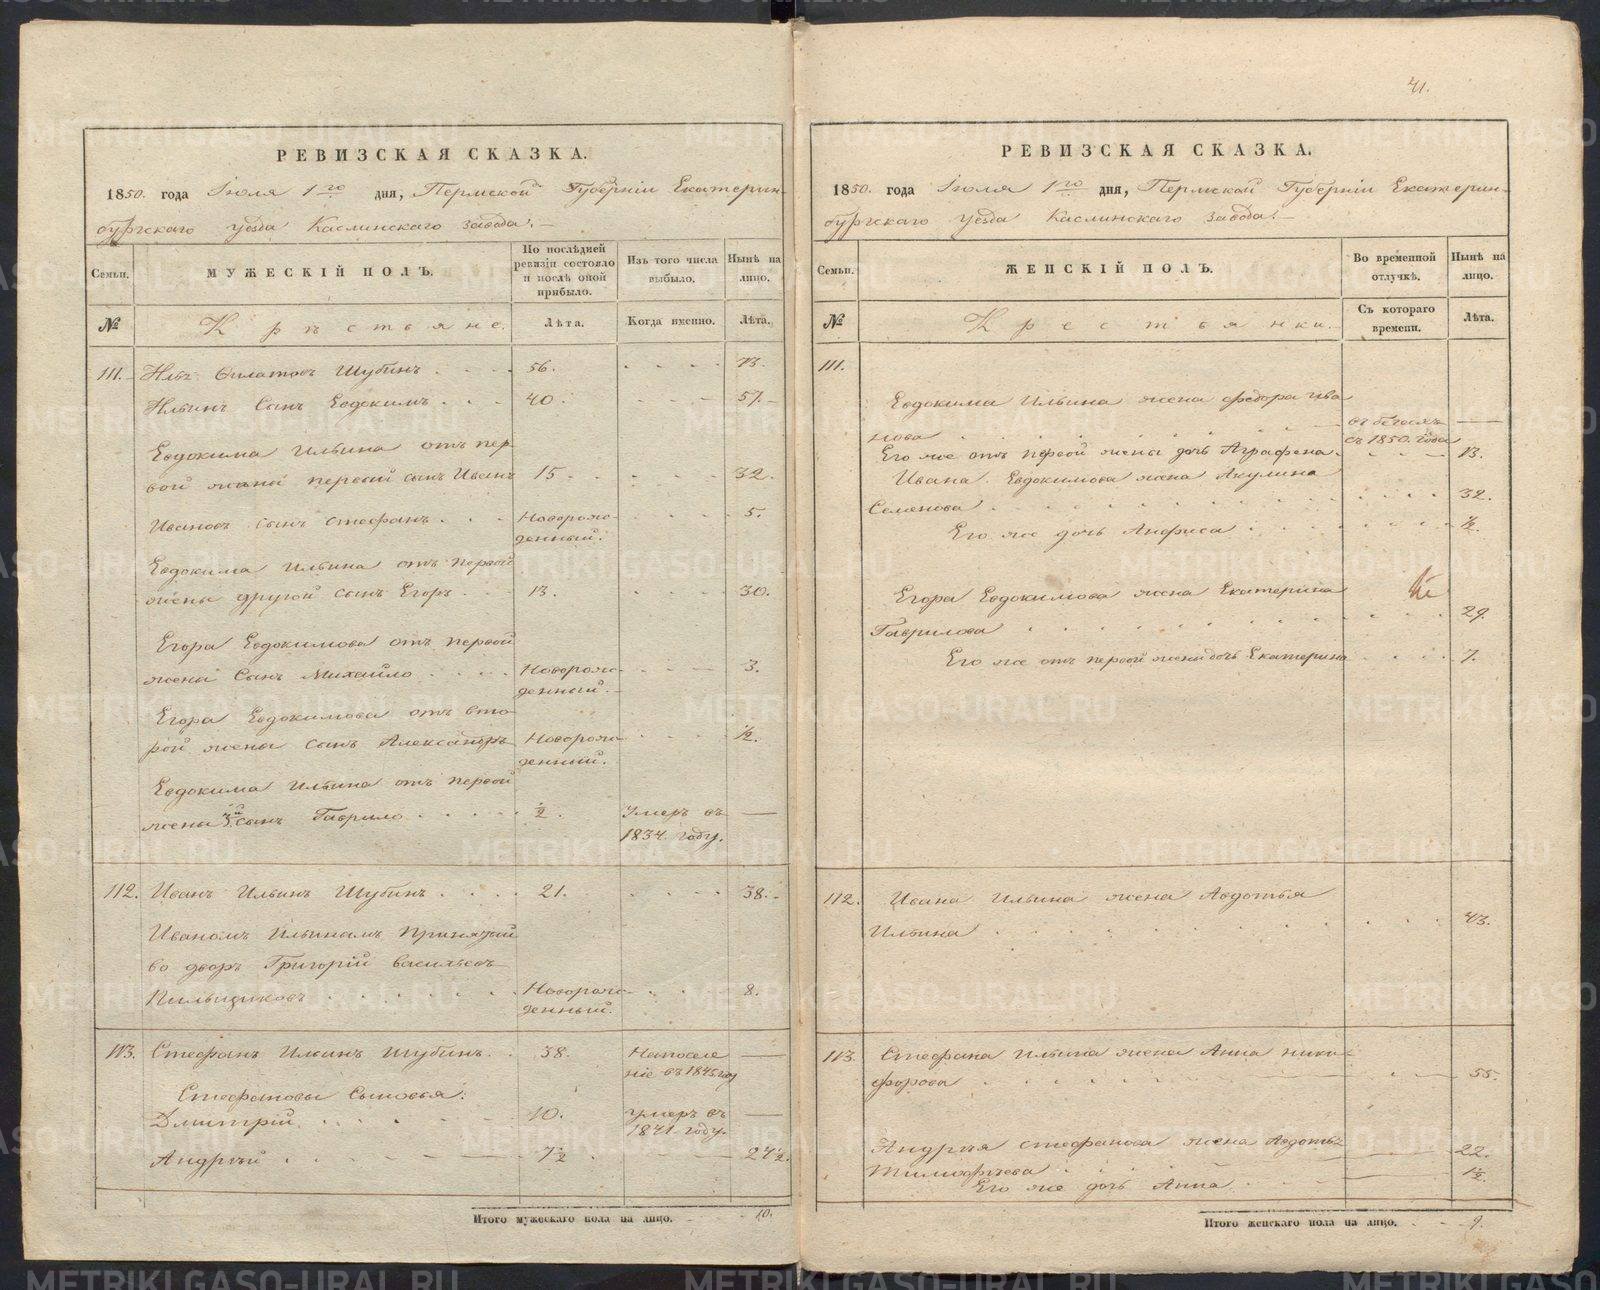 41.
РЕВИЗСКАЯ СКАЗКА.
1850. года Іюля 1го дня, Пермской Губерніи Екатерин-
бургскаго уезда Каслинскаго завода.
Семьи.
МУЖЕСКІЙ ПОЛЪ.
По послѣдней ревизіи состояло и послѣ оной прибыло.
Изъ того числа выбыло.
Нынѣ на лицо.
№
Крестьяне.
Лѣта.
Когда именно.
Лѣта.
111. Шубинъ 56.
Ильинъ Сынъ Евдокимъ 40. 57.
Евдокима Ильина отъ пер
вой жены первый сынъ Иванъ 15 32.
Ивановъ сынъ Стефанъ Новорож- 5.
денный.
Евдокима Ильина отъ первой
жены другой сынъ Егоръ 13. 30.
Егора Евдокимова отъ первой
жены Сынъ Михайло Новорож- 3.
денный.
Егора Евдокимова отъ вто-
рой жены сынъ Александръ Новорож- ½.
денный.
Евдокима Ильина отъ первой
жены 3й сынъ Гаврило ½. Умеръ въ
1834. году.
112. Иванъ Ильинъ Шубинъ 21. 38.
Иваномъ Ильинымъ Принятый
во дворъ Григорій Васильевъ
Новорож- 8.
денный.
113. Стефанъ Ильинъ Шубинъ 38. На поселе
ніе въ 1845 году
Стефановы Сыновья:
Дмитрій 10. умеръ въ
1841. году.
Андрей 7½ 24½.
Итого мужескаго пола на лицо. 10.
РЕВИЗСКАЯ СКАЗКА.
1850. года Іюля 1го дня, Пермской Губерніи Екатерин-
бургскаго уезда Каслинскаго завода.
Семьи.
ЖЕНСКІЙ ПОЛЪ.
Во временной отлучкѣ.
Нынѣ на лицо.
№
Крестьянки.
Съ котораго времени.
Лѣта.
111.
Евдокима Ильина жена Федора Ива
нова въ бегахъ
съ 1850. года
Его же отъ первой жены дочь Аграфена 13.
Ивана Евдокимова жена Акулина
Семенова 32.
Его же дочь Анфиса ½.
Егора Евдокимова жена Екатерина
Гаврилова 29.
Его же отъ первой жены дочь Екатерина 7.
112. Ивана Ильина жена Авдотья
Ильина 43.
113. Стефана Ильина жена Анна Ники-
форова 55.
Андрея Стефанова жена Авдотья
Тимофеева 22.
Его же дочь Анна 1½.
Итого женскаго пола на лицо. 9.